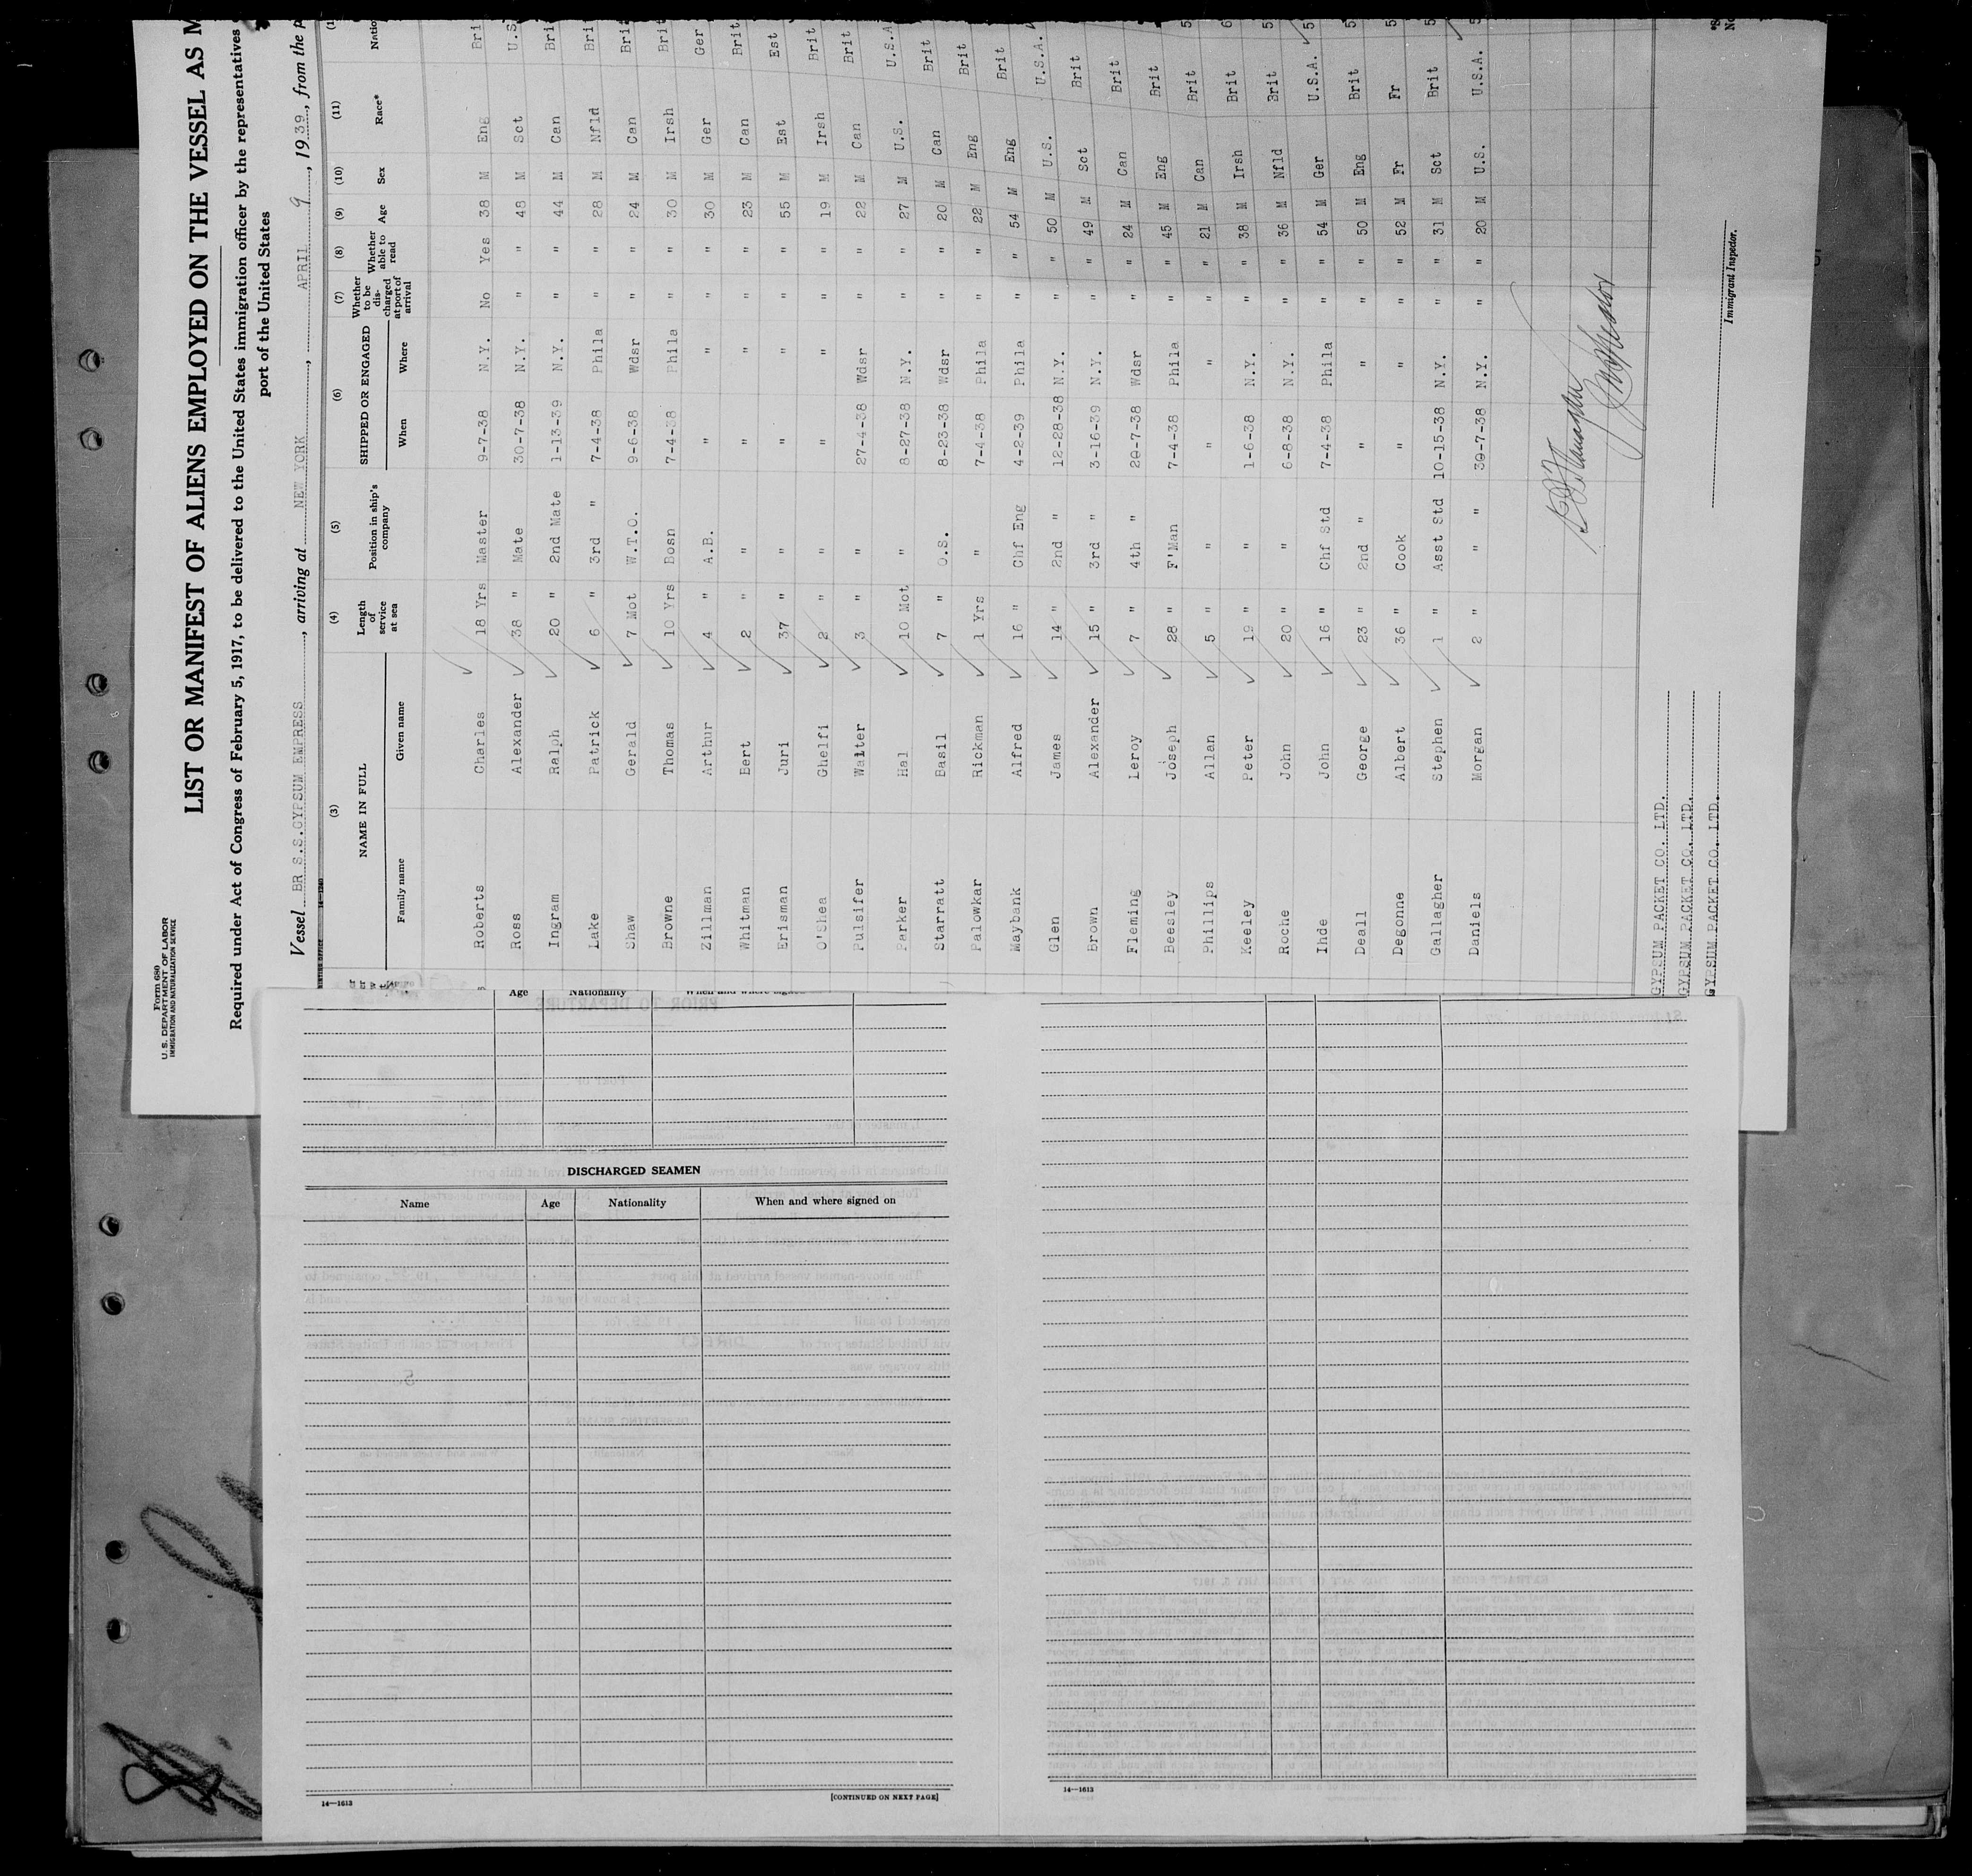 Form 680
U. S. DEPARTMENT OF LABOR
IMMIGRATION AND NATURALIZATION SERVICE
LIST OR MANIFEST OF ALIENS EMPLOYED ON THE VESSEL AS M
Required under Act of Congress of February 5, 1917, to be delivered to the United States immigration officer by the representatives
port of the United States
Vessel BR S.S. GYPSUM EMPRESS, arriving at NEW YORK, APRIL 9, 1939, from the p
(3) (4) (5) (6) (7) (8) (9) (10) (11)
NAME IN FULL Length of service at sea Position in ship's company SHIPPED OR ENGAGED Whether to be discharged at port of arrival Whether able to read Age Sex Race* Natio
Family name Given name When Where
Roberts Charles 18 Yrs Master 9-7-38 N.Y. No Yes 38 M Eng Bri
Ross Alexander 38 " Mate 30-7-38 N.Y. " " 48 M Sct U.S.
Ingram Ralph 20 " 2nd Mate 1-13-39 N.Y. " " 44 M Can Bri
Lake Patrick 6 " 3rd " 7-4-38 Phila " " 28 M Nfld Bri
Shaw Gerald 7 Mot W.T.O. 9-6-38 Wdsr " " 24 M Can Brit
Browne Thomas 10 Yrs Bosn 7-4-38 Phila " " 30 M Irsh Brit
Zillman Arthur 4 " A.B. " " " " 30 M Ger Ger
Whitman Bert 2 " " " " " " 23 M Can Brit
Erisman Juri 37 " " " " " " 55 M Est Est
O'Shea Ghelfi 2 " " " " " " 19 M Irsh Brit
Pulsifer Walter 3 " " 27-4-38 Wdsr " " 22 M Can Brit
Parker Hal 10 Mot " 8-27-38 N.Y. " " 27 M U.S. U.S.A
Starratt Basil 7 " O.S. 8-23-38 Wdsr " " 20 M Can Brit
Palowkar Rickman 1 Yrs " 7-4-38 Phila " " 22 M Eng Brit
Maybank Alfred 16 " Chf Eng 4-2-39 Phila " " 54 M Eng Brit
Glen James 14 " 2nd " 12-28-38 N.Y. " " 50 M U.S. U.S.A.
Brown Alexander 15 " 3rd " 3-16-39 N.Y. " " 49 M Sct Brit
Fleming Leroy 7 " 4th " 20-7-38 Wdsr " " 24 M Can Brit
Beesley Joseph 28 " F'Man 7-4-38 Phila " " 45 M Eng Brit
Phillips Allan 5 " " " " " " 21 M Can Brit 5
Keeley Peter 19 " " 1-6-38 N.Y. " " 38 M Irsh Brit 6
Roche John 20 " " 6-8-38 N.Y. " " 36 M Nfld Brit 5
Ihde John 16 " Chf Std 7-4-38 Phila " " 54 M Ger U.S.A. 5
Deall George 23 " 2nd " " " " " 50 M Eng Brit 5
Degonne Albert 36 " Cook " " " " 52 M Fr Fr 5
Gallagher Stephen 1 " Asst Std 10-15-38 N.Y. " " 31 M Sct Brit 5
Daniels Morgan 2 " " 30-7-38 N.Y. " " 20 M U.S. U.S.A. 5
GYPSUM PACKET CO. LTD.
GYPSUM PACKET CO. LTD.
GYPSUM PACKET CO. LTD.
Immigrant Inspector.
Age Nationality When and where signed
DISCHARGED SEAMEN
Name Age Nationality When and where signed on
14—1613
[CONTINUED ON NEXT PAGE]
14—1613